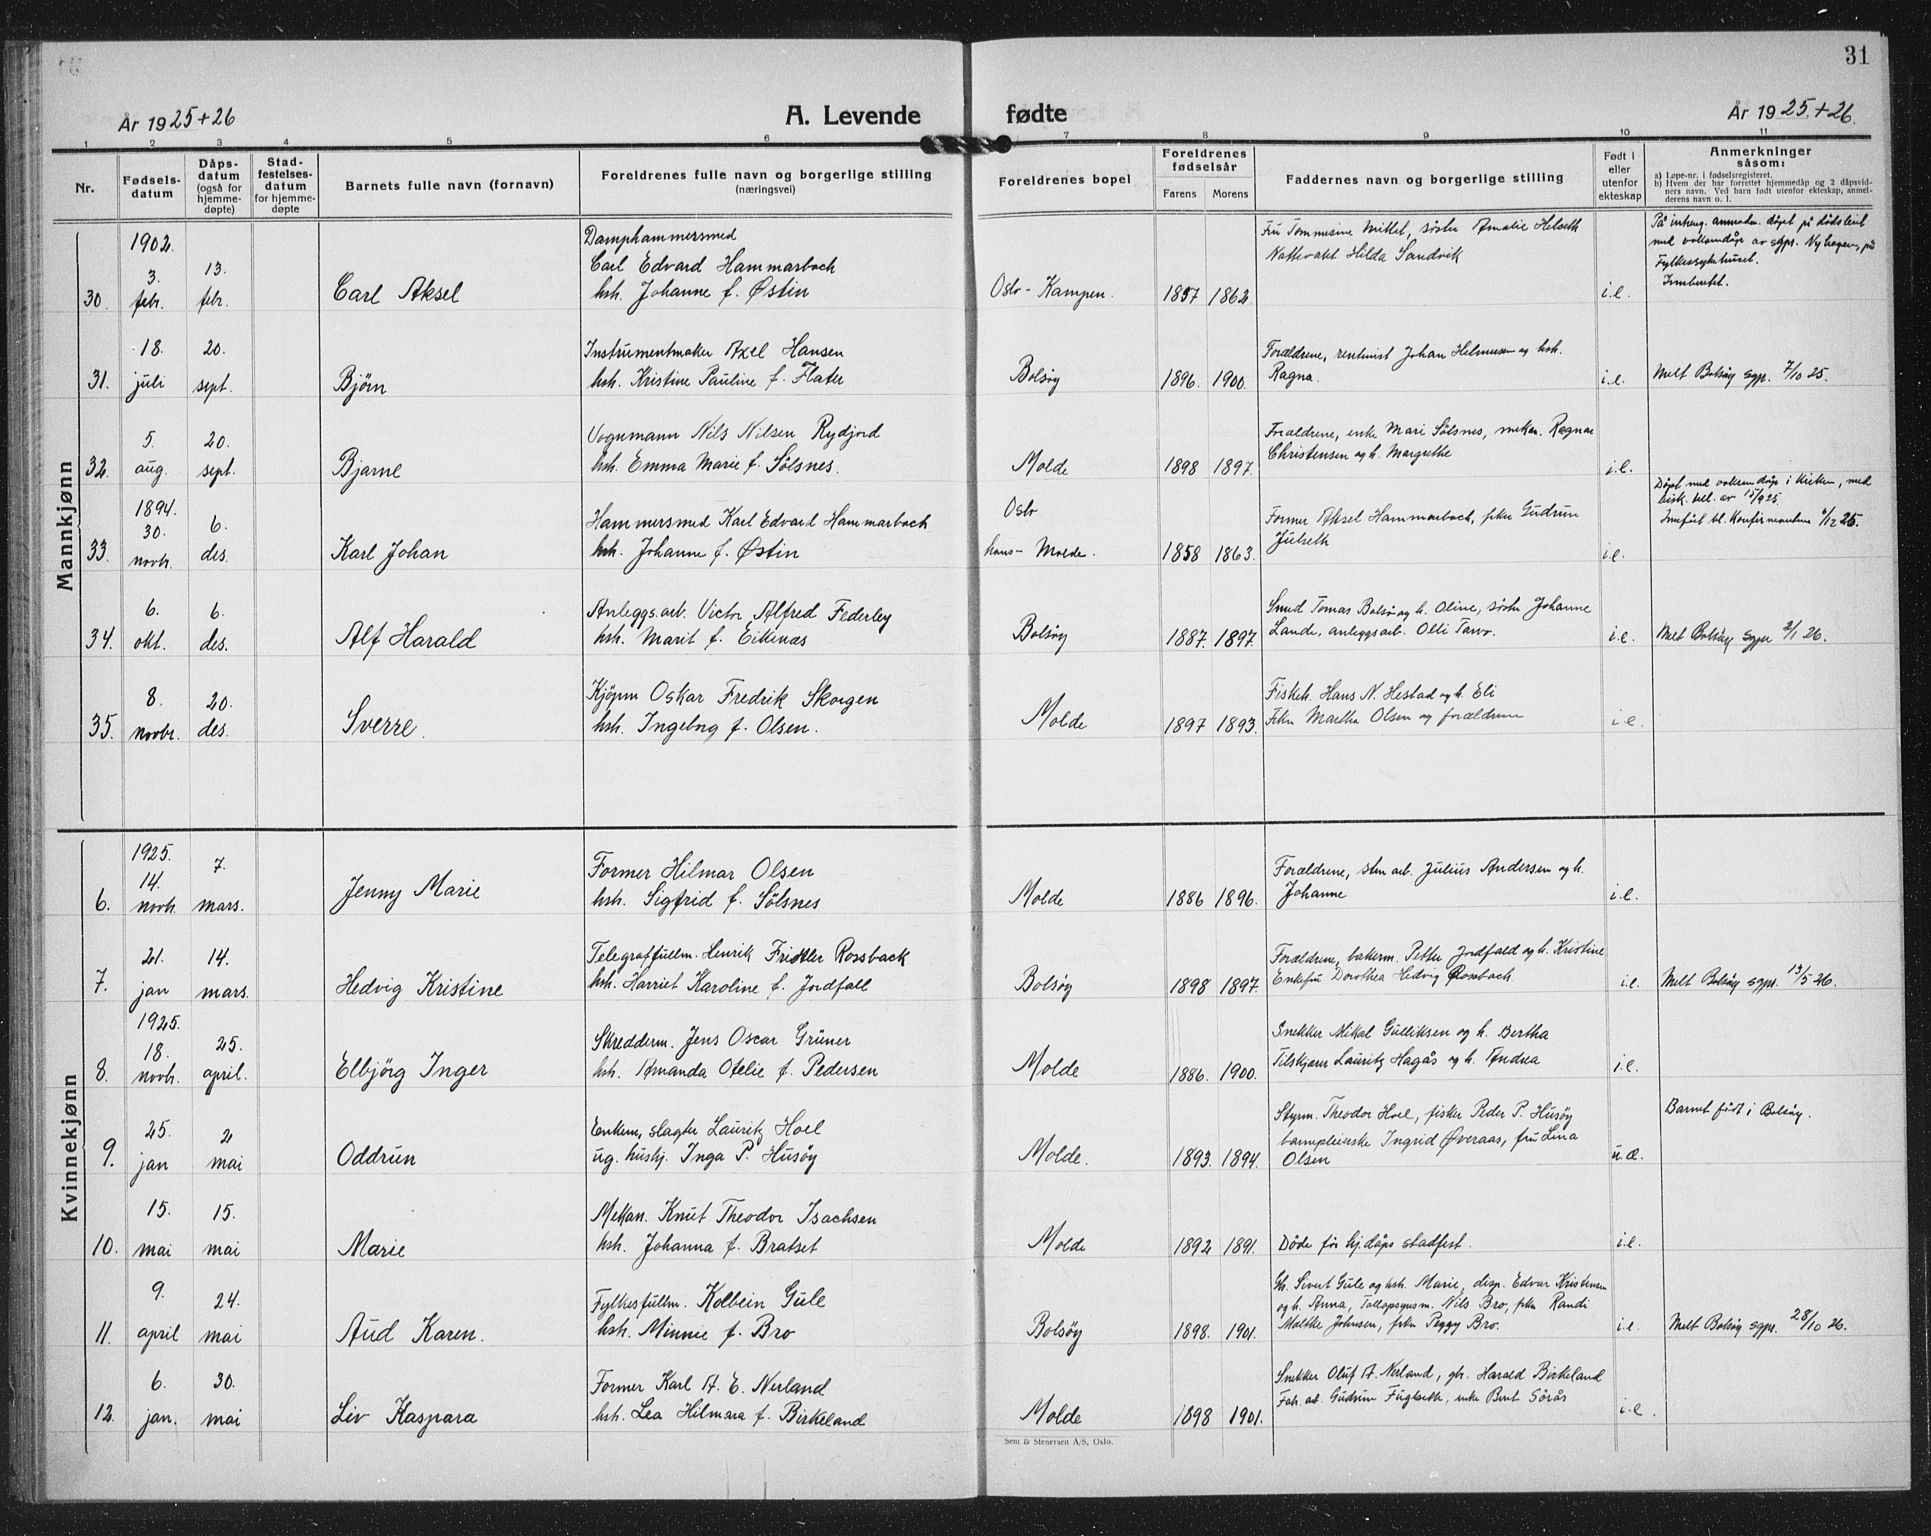 31
År 1925+26
A. Levende
fødte
År 1925+26.
1 2 3 4 5 6 7 8 9 10 11
Nr.
Fødsels-
datum
Dåps-
datum
(også for
hjemme-
døpte)
Stad-
festelses-
datum
for hjemme-
døpte
Barnets fulle navn (fornavn)
Foreldrenes fulle navn og borgerlige stilling
(næringsvei)
Foreldrenes bopel
Foreldrenes
fødselsår
Farens Morens
Faddernes navn og borgerlige stilling
Født i
eller
utenfor
ekteskap
Anmerkninger
såsom:
a) Løpe-nr. i fødselsregisteret.
b) Hvem der har forrettet hjemmedåp og 2 dåpsvid-
ners navn. Ved barn født utenfor ekteskap, anmel-
derens navn o. l.
Mannkjønn
30. 1902. 3. febr. 13. febr. Carl Aksel
Damphammersmed
Carl Edvard Hammarbach
hsh. Johanne f. Østin
Oslo - Kampen. 1857 1862
Frü Tommesine Mittet, søster Amalie Helseth
Nattevakt Hilda Sandvik
i.e.
døpt på dødsleiet
Fylkessykehuset.
Innberetet.
31. 18. juli 20. sept. Bjørn
Instrumentmaker Axel Hansen
hsh. Kristine Pauline f. Flater
Bolsøy 1896. 1900.
Forældrene, rentenist Johan Helmersen og hsh.
Ragna.
i.e. Melt Bolsøy sgpr. 7/10 25.
32. 5. aug. 20. sept. Bjarne
Vognmann Nils Nilsen Rydjord
hsh. Emma Marie f. Sölsnes.
Molde 1898 1897.
Forældrene, enke Mari Sölsnes, mekan. Ragnar
Christensen og h. Margrethe
i.e.
33. 1894. 30. novbr. 6. des. Karl Johan
Hammersmed Karl Edvard Hammarbach
hsh. Johanne f. Østin
Oslo
hans - Molde. 1858 1863.
Former Aksel Hammarbach, frkn Gudrun
Julseth
i.e.
Døpt med voksendåp i Kirken, med
bisk. tel. av 15/9 25
Innført bl. Konfirmantene 6/12 25.
34. 6. okt. 6. des. Alf Harald
Anleggsarb. Victor Alfred Federley
hsh. Marit f. Eikenæs
Bolsøy 1887. 1897.
Smed Tomas Bolsø og h. Oline, søster Johanne
Lande, anleggsarb. Olli Tarvo.
i.e. Melt Bolsøy sgpr 2/1 26.
35. 8. novbr. 20. des. Sverre.
Kjøpm Oskar Fredrik Skorgen
hsh. Ingeborg f. Olsen.
Molde 1897 1893.
Fiskeh. Hans N. Hestad og h. Eli
Frkn Martha Olsen og forældrene
i.e.
Kvinnekjønn
6. 1925. 14. novb. 7. mars. Jenny Marie
Former Hilmar Olsen
hsh. Sigfrid f. Sölsnes
Molde 1886 1896.
Forældrene, sten arb. Julius Andersen og h.
Johanne
i.e.
7. 21. jan 14. mars. Hedvig Kristine
Telegraffullm. Henrik Fridtler Rossback
hsh. Harriet Karoline f. Jordfall
Bolsøy 1898 1897.
Forældrene, bakerm. Petter Jordfald og h. Kristine
Enkefru Dorothea Hedvig Rossbach.
i.e. Melt Bolsøy sgpr. 13/5 26.
8. 1925. 18. novb. 25. april. Elbjörg Inger
Skredderm. Jens Oscar Grüner
hsh. Amanda Otelie f. Pedersen
Molde 1886. 1900.
Snekker Mikal Gulliksen og h. Bertha
Tilskjærer Lauritz Hagås og h. Andrea
i.e.
9. 25. jan 2 mai Oddrun
Enkem, slagter Lauritz Hoel
ug. hushj. Inga P. Husøy
Molde. 1893. 1894.
Styrm. Theodor Hoel, fisker Peder P. Husøy
barnepleierske Ingrid Øveraas, fru Lina
Olsen
u.æ.
Barnet født i Bolsøy.
10. 15. mai 15. mai Marie
Mekan. Knut Theodor Isachsen
hsh. Johanna f. Bratset
Molde 1892 1891. Døde før hj.dåps stadfest. i.e.
11. 9. april 24. mai Aud Karen.
Fylkesfullm. Kolbein Gule
hsh. Minnie f. Bro
Bolsøy 1898. 1901.
Gh. Sivert Gule og hsh. Marie, disp. Edvar Kristensen
og h. Anna, Tollopsynsm. Nils Bro, frkn Randi
Moltke Johnsen, frkn Peggy Bro.
i.e. Melt Bolsøy sgpr. 28/10 26.
12. 6. jan. 30. mai Liv Kaspara
Former Karl A. E. Nerland
hsh. Lea Hilmara f. Birkeland
Molde 1898 1901.
Snekker Oluf A. Nerland, gh. Harald Birkeland
Fab. arb. Gudrun Fuglseth, enke Berit Sörås
i.e.
Sem & Stenersen A/S, Oslo.